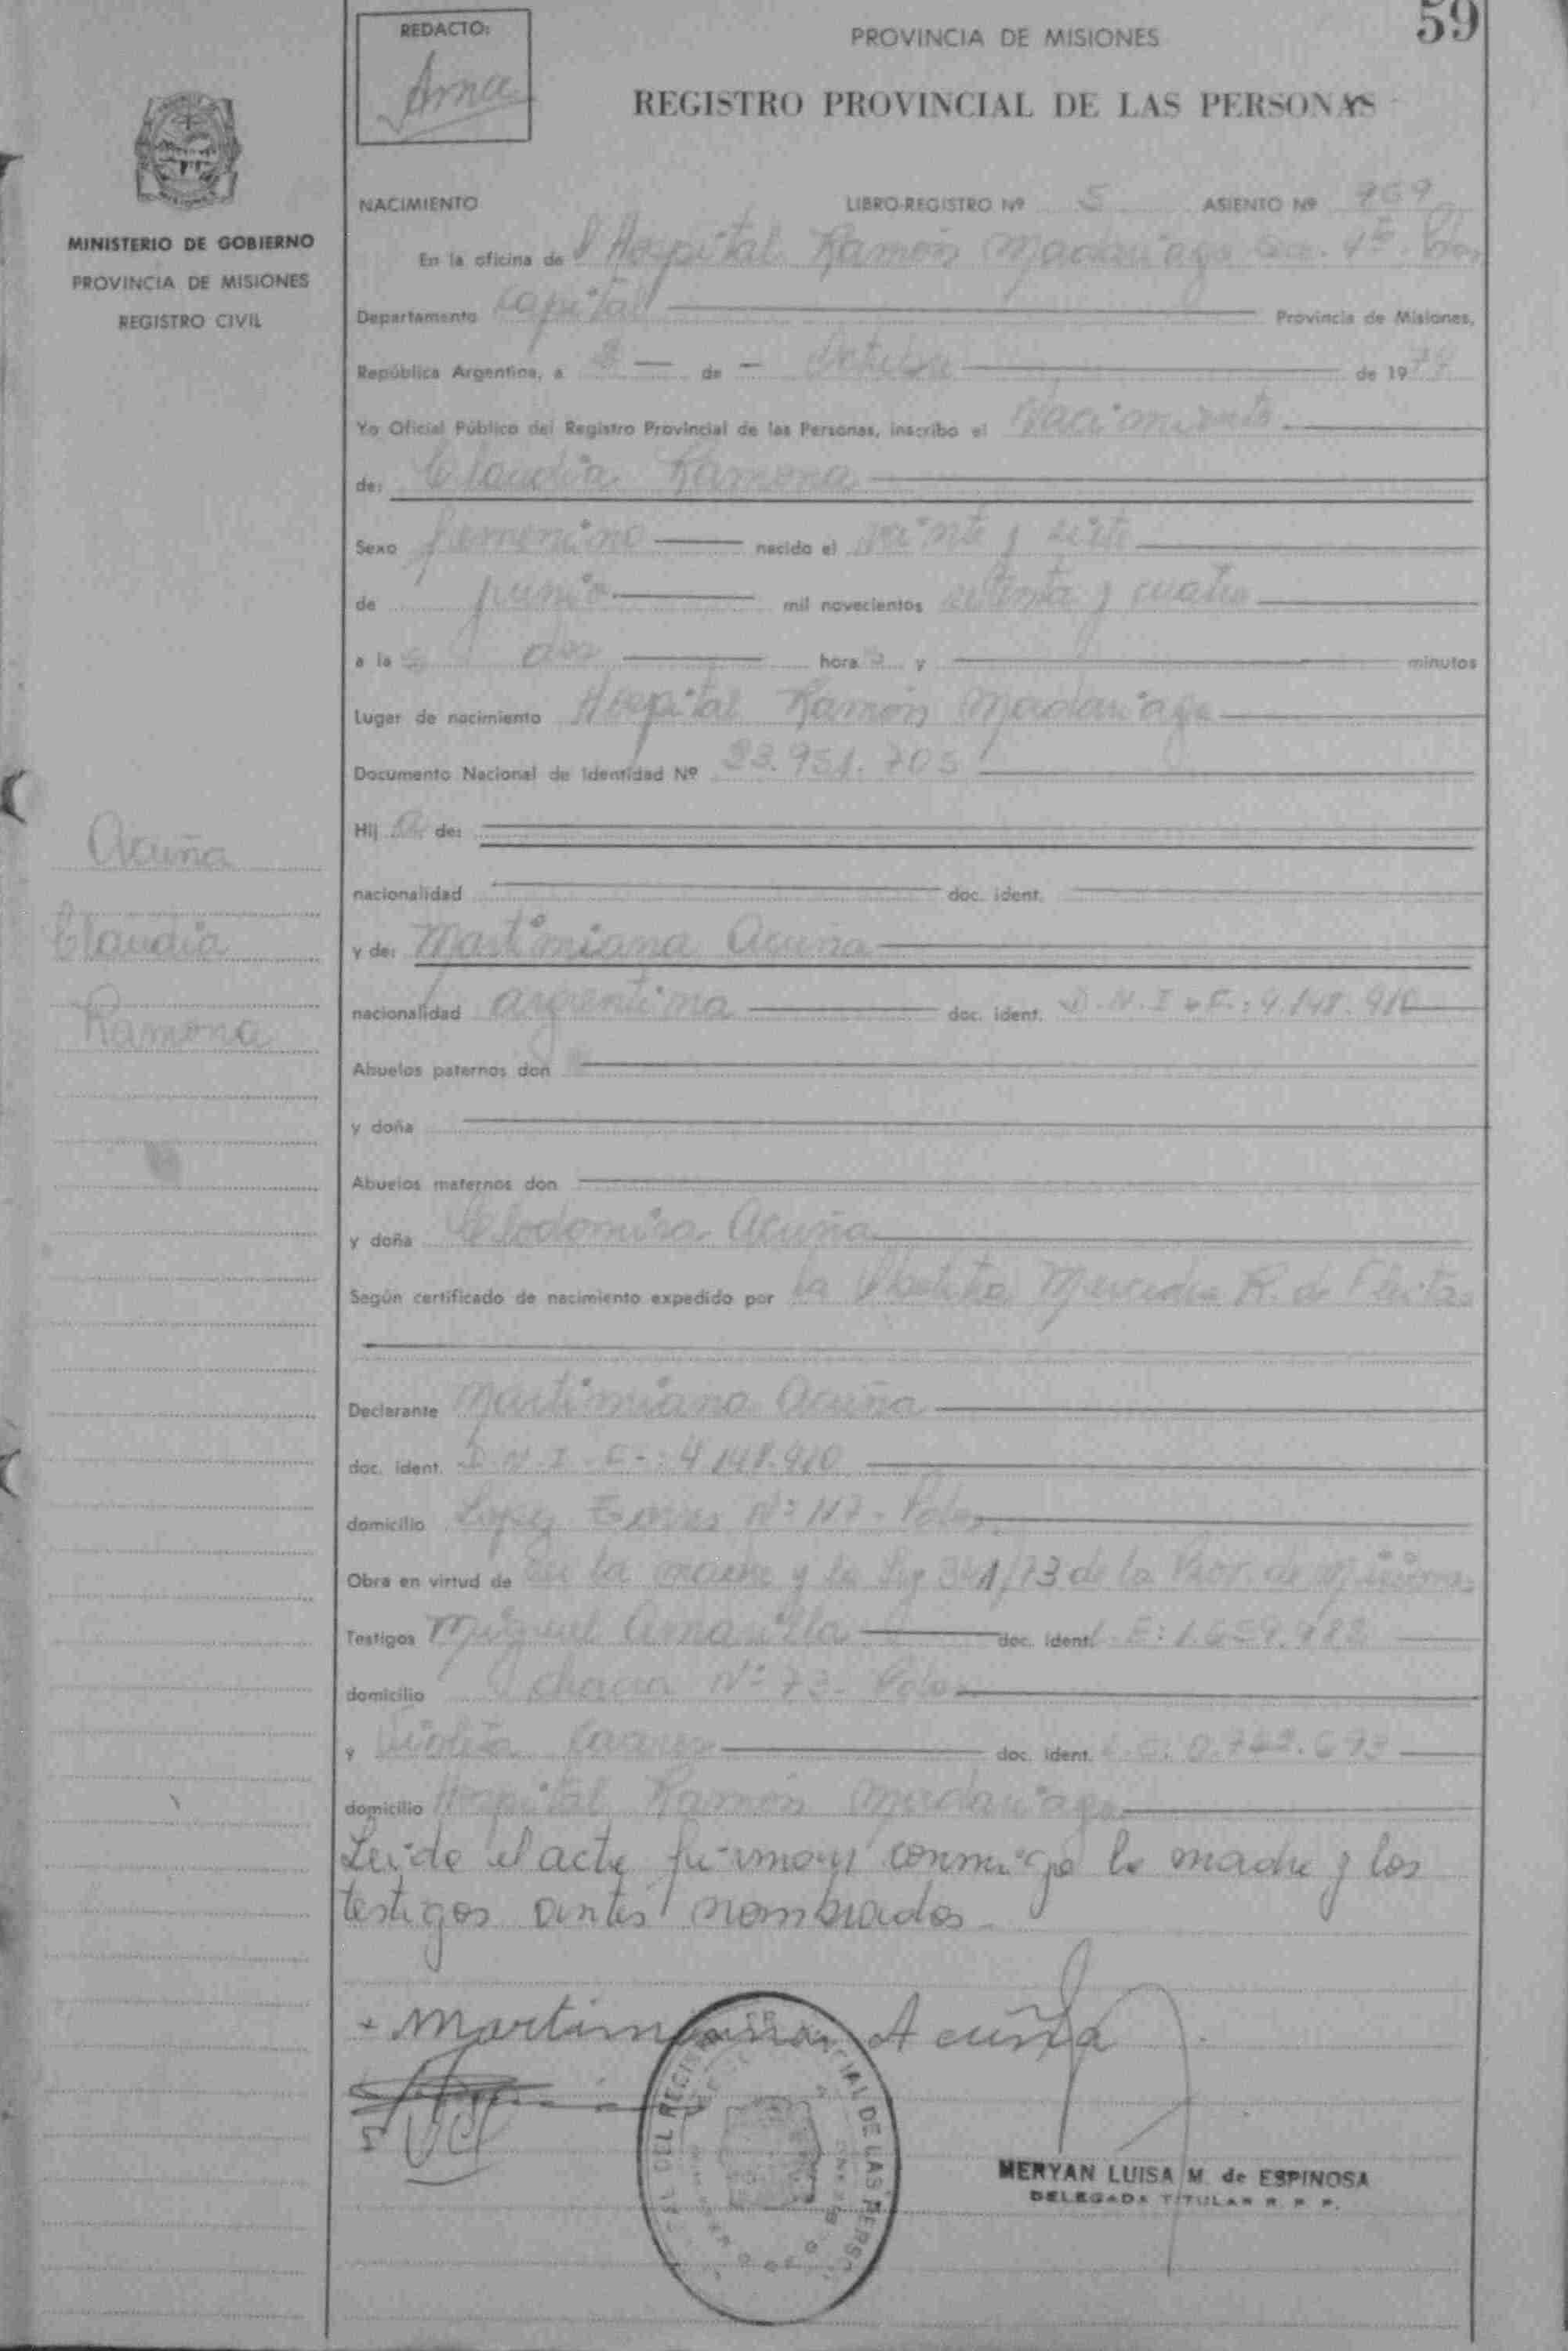 59
REDACTO:
PROVINCIA DE MISIONES
REGISTRO PROVINCIAL DE LAS PERSONAS
MINISTERIO DE GOBIERNO
PROVINCIA DE MISIONES
REGISTRO CIVIL
NACIMIENTO LIBRO-REGISTRO Nº 5 ASIENTO Nº
En la oficina de Hospital Ramón Madariaga
Departamento Capital Provincia de Misiones,
República Argentina, a de Octubre de 19
Yo Oficial Público del Registro Provincial de las Personas, inscribo el Nacimiento
de: Claudia Ramona
Sexo femenino nacido el veinte y siete
de junio mil novecientos setenta y cuatro
a las dos horas y minutos
Lugar de nacimiento Hospital Ramón Madariaga
Documento Nacional de Identidad Nº 23.951.705
Hija de:
Acuña
nacionalidad doc. ident.
Claudia
y de: Martimiana Acuña
nacionalidad argentina doc. ident.
Ramona
Abuelos paternos don
y doña
Abuelos maternos don
y doña Clodomira Acuña
Según certificado de nacimiento expedido por la Mercedes R. de
Declarante Martimiana Acuña
doc. ident.
domicilio Lopez Torres Nº 117 - Pdas.
Obra en virtud de la madre y la Ley 341/73 de la Prov. de Misiones
Testigos Miguel Amarilla doc. ident.
domicilio chacra Nº 73 - Pdas
y doc. ident.
domicilio Hospital Ramón Madariaga
Leida el acta firman conmigo la madre y los
testigos antes nombrados
Martimiana Acuña
DEL REGISTRO PROVINCIAL DE LAS PERSO
MERYAN LUISA M. de ESPINOSA
DELEGADA TITULAR R. P. P.